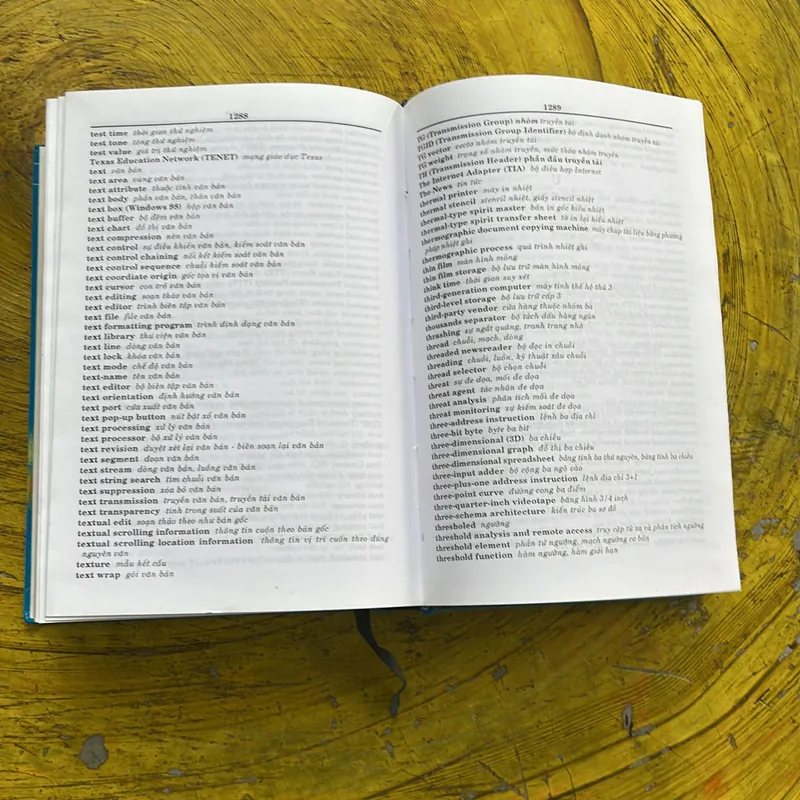 1288
test time thời gian thử nghiệm
test tone tông thử nghiệm
test value giá trị thử nghiệm
Texas Education Network (TENET) mạng giáo dục Texas
text văn bản
text area vùng văn bản
text attribute thuộc tính văn bản
text body phần văn bản, thân văn bản
text box (Windows 98) hộp văn bản
text buffer bộ đệm văn bản
text chart đồ thị văn bản
text compression nén văn bản
text control sự điều khiển văn bản, kiểm soát văn bản
text control chaining nối kết kiểm soát văn bản
text control sequence chuỗi kiểm soát văn bản
text coordiate origin gốc tọa vị văn bản
text cursor con trỏ văn bản
text editing soạn thảo văn bản
text editor trình biên tập văn bản
text file file văn bản
text formatting program trình định dạng văn bản
text library thư viện văn bản
text line dòng văn bản
text lock khóa văn bản
text mode chế độ văn bản
text-name tên văn bản
text editor bộ biên tập văn bản
text orientation định hướng văn bản
text port cửa xuất văn bản
text pop-up button nút bật xổ văn bản
text processing xử lý văn bản
text processor bộ xử lý văn bản
text revision duyệt xét lại văn bản - biên soạn lại văn bản
text segment đoạn văn bản
text stream dòng văn bản, luồng văn bản
text string search tìm chuỗi văn bản
text suppression xóa bỏ văn bản
text transmission truyền văn bản, truyền tải văn bản
text transparency tính trong suốt của văn bản
textual edit soạn thảo theo như bản gốc
textual scrolling information thông tin cuộn theo bản gốc
textual scrolling location information thông tin vị trí cuốn theo đúng
nguyên văn
texture mẫu kết cấu
text wrap gói văn bản
1289
TG (Transmission Group) nhóm truyền tải
TGID (Transmission Group Identifier) bộ định danh nhóm truyền tải
TG vector vecto nhóm truyền tải
TG weight trọng số nhóm truyền, mức thừa nhóm truyền
TH (Transmission Header) phần đầu truyền tải
The Internet Adapter (TIA) bộ điều hợp Internet
The News tin tức
thermal printer máy in nhiệt
thermal stencil stencil nhiệt, giấy stencil nhiệt
thermal-type spirit master bản in gốc kiểu nhiệt
thermal-type spirit transfer sheet tờ in lại kiểu nhiệt
thermographic document copying machine máy chụp tài liệu bằng phương
pháp nhiệt ghi
thermographic process quá trình nhiệt ghi
thin film màn hình mỏng
thin film storage bộ lưu trữ màn hình mỏng
think time thời gian suy xét
third-generation computer máy tính thế hệ thứ 3
third-level storage bộ lưu trữ cấp 3
third-party vendor cửa hàng thuộc nhóm ba
thousands separator bộ tách dấu hàng ngàn
thrashing sự ngắt quãng, tranh trang nhà
thread chuỗi, mạch, dòng
threaded newsreader bộ đọc in chuỗi
threading chuỗi, luồn, kỹ thuật xâu chuỗi
thread selector bộ chọn chuỗi
threat sự đe dọa, mối đe dọa
threat agent tác nhân đe dọa
threat analysis phân tích mối đe dọa
threat monitoring sự kiểm soát đe dọa
three-address instruction lệnh ba địa chỉ
three-bit byte byte ba bit
three-dimensional (3D) ba chiều
three-dimensional graph đồ thị ba chiều
three-dimensional spreadsheet bảng tính ba thứ nguyên, bảng tính ba chiều
three-input adder bộ cộng ba ngõ vào
three-plus-one address instruction lệnh địa chỉ 3+1
three-point curve đường cong ba điểm
three-quarter-inch videotape băng hình 3/4 inch
three-schema architecture kiến trúc ba sơ đồ
thresholed ngưỡng
threshold analysis and remote access truy cập từ xa và phân tích ngưỡng
threshold element phần tử ngưỡng, mạch ngưỡng cơ bản
threshold function hàm ngưỡng, hàm giới hạn